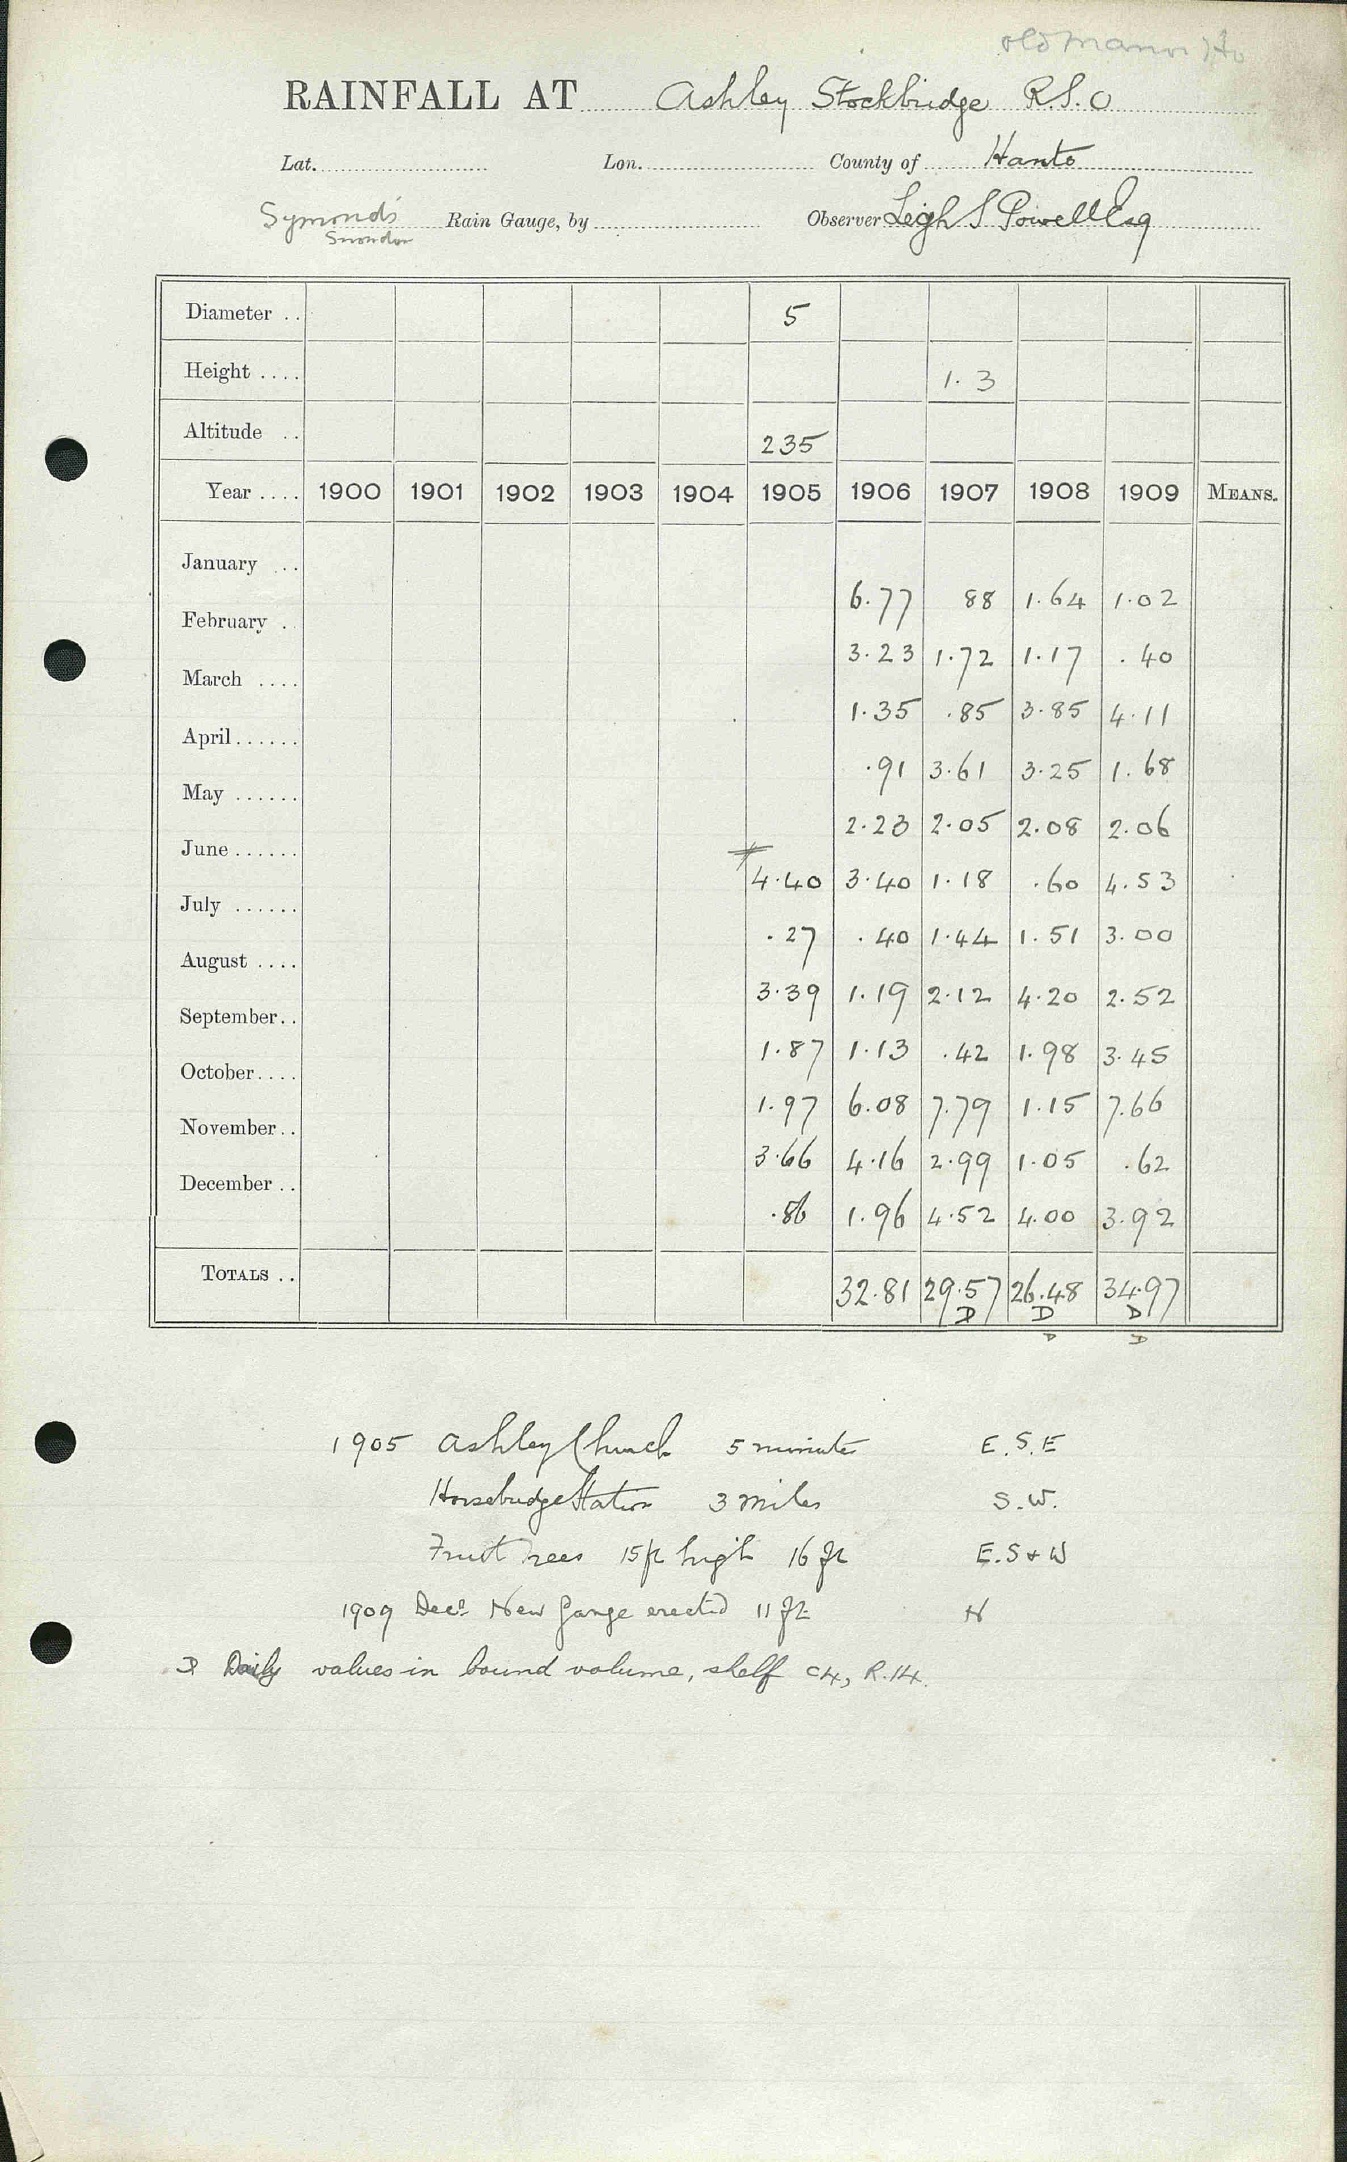 old Manor Ho
RAINFALL AT Ashley Stockbridge R.S.O
Lat. Lon. County of Hants
Symond's Rain Gauge, by Observer Leigh S Powell Esq
Snowdon
Diameter .. 5
Height .... 1.3
Altitude .. 235
Year .... 1900 1901 1902 1903 1904 1905 1906 1907 1908 1909 MEANS.
January ... 6.77 88 1.64 1.02
February . 3.23 1.72 1.17 .40
March .... 1.35 .85 3.85 4.11
April...... .91 3.61 3.25 1.68
May ...... 2.23 2.05 2.08 2.06
June...... 4.40 3.40 1.18 .60 4.53
July ...... .27 .40 1.44 1.51 3.00
August .... 3.39 1.19 2.12 4.20 2.52
September.. 1.87 1.13 .42 1.98 3.45
October.... 1.97 6.08 7.79 1.15 7.66
November.. 3.66 4.16 2.99 1.05 .62
December .. .86 1.96 4.52 4.00 3.92
TOTALS .. 32.81 29.57 26.48 34.97
D D D
D D
1905 Ashley Church 5 minutes E.S.E
Horsebridge Station 3 miles S.W.
Fruit Trees 15ft high 16 ft E.S + W
1909 Decr New Gauge erected 11 ft N
D Daily values in bound volume, shelf C4, R.14.